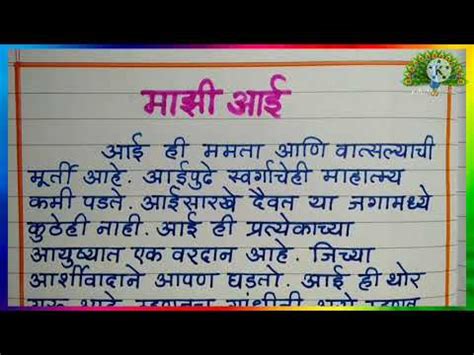 माझी आई
आई ही ममता आणि वात्सल्याची
मूर्ती आहे. आईपुढे स्वर्गाचेही माहात्म्य
कमी पडते. आईसारखे दैवत या जगामध्ये
कुठेही नाही. आई ही प्रत्येकाच्या
आयुष्यात एक वरदान आहे. जिच्या
आर्शीवादाने आपण घडतो. आई ही थोर